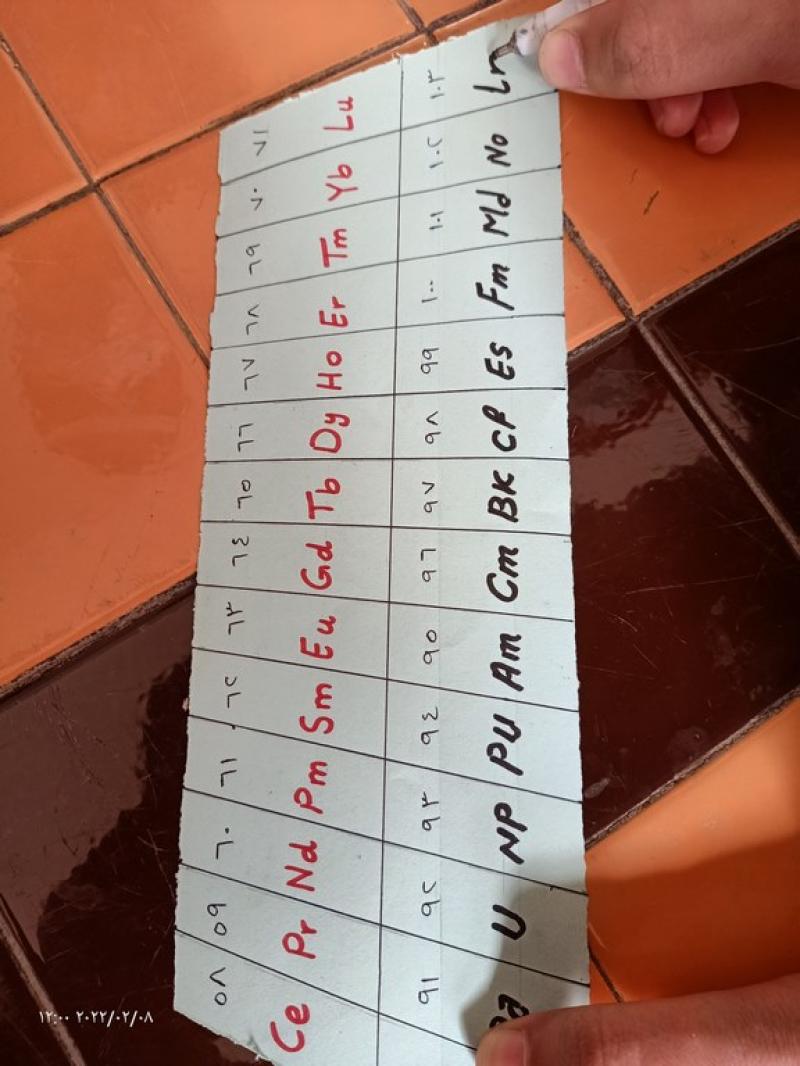 ٥٨ ٥٩ ٦٠ ٦١ ٦٢ ٦٣ ٦٤ ٦٥ ٦٦ ٦٧ ٦٨ ٦٩ ٧٠ ٧١
Ce Pr Nd Pm Sm Eu Gd Tb Dy Ho Er Tm Yb Lu
٩١ ٩٢ ٩٣ ٩٤ ٩٥ ٩٦ ٩٧ ٩٨ ٩٩ ١٠٠ ١٠١ ١٠٢ ١٠٣
U NP PU Am Cm BK Cf Es Fm Md No Lr
١٢:٠٠ ٢٠٢٢/٠٢/٠٨